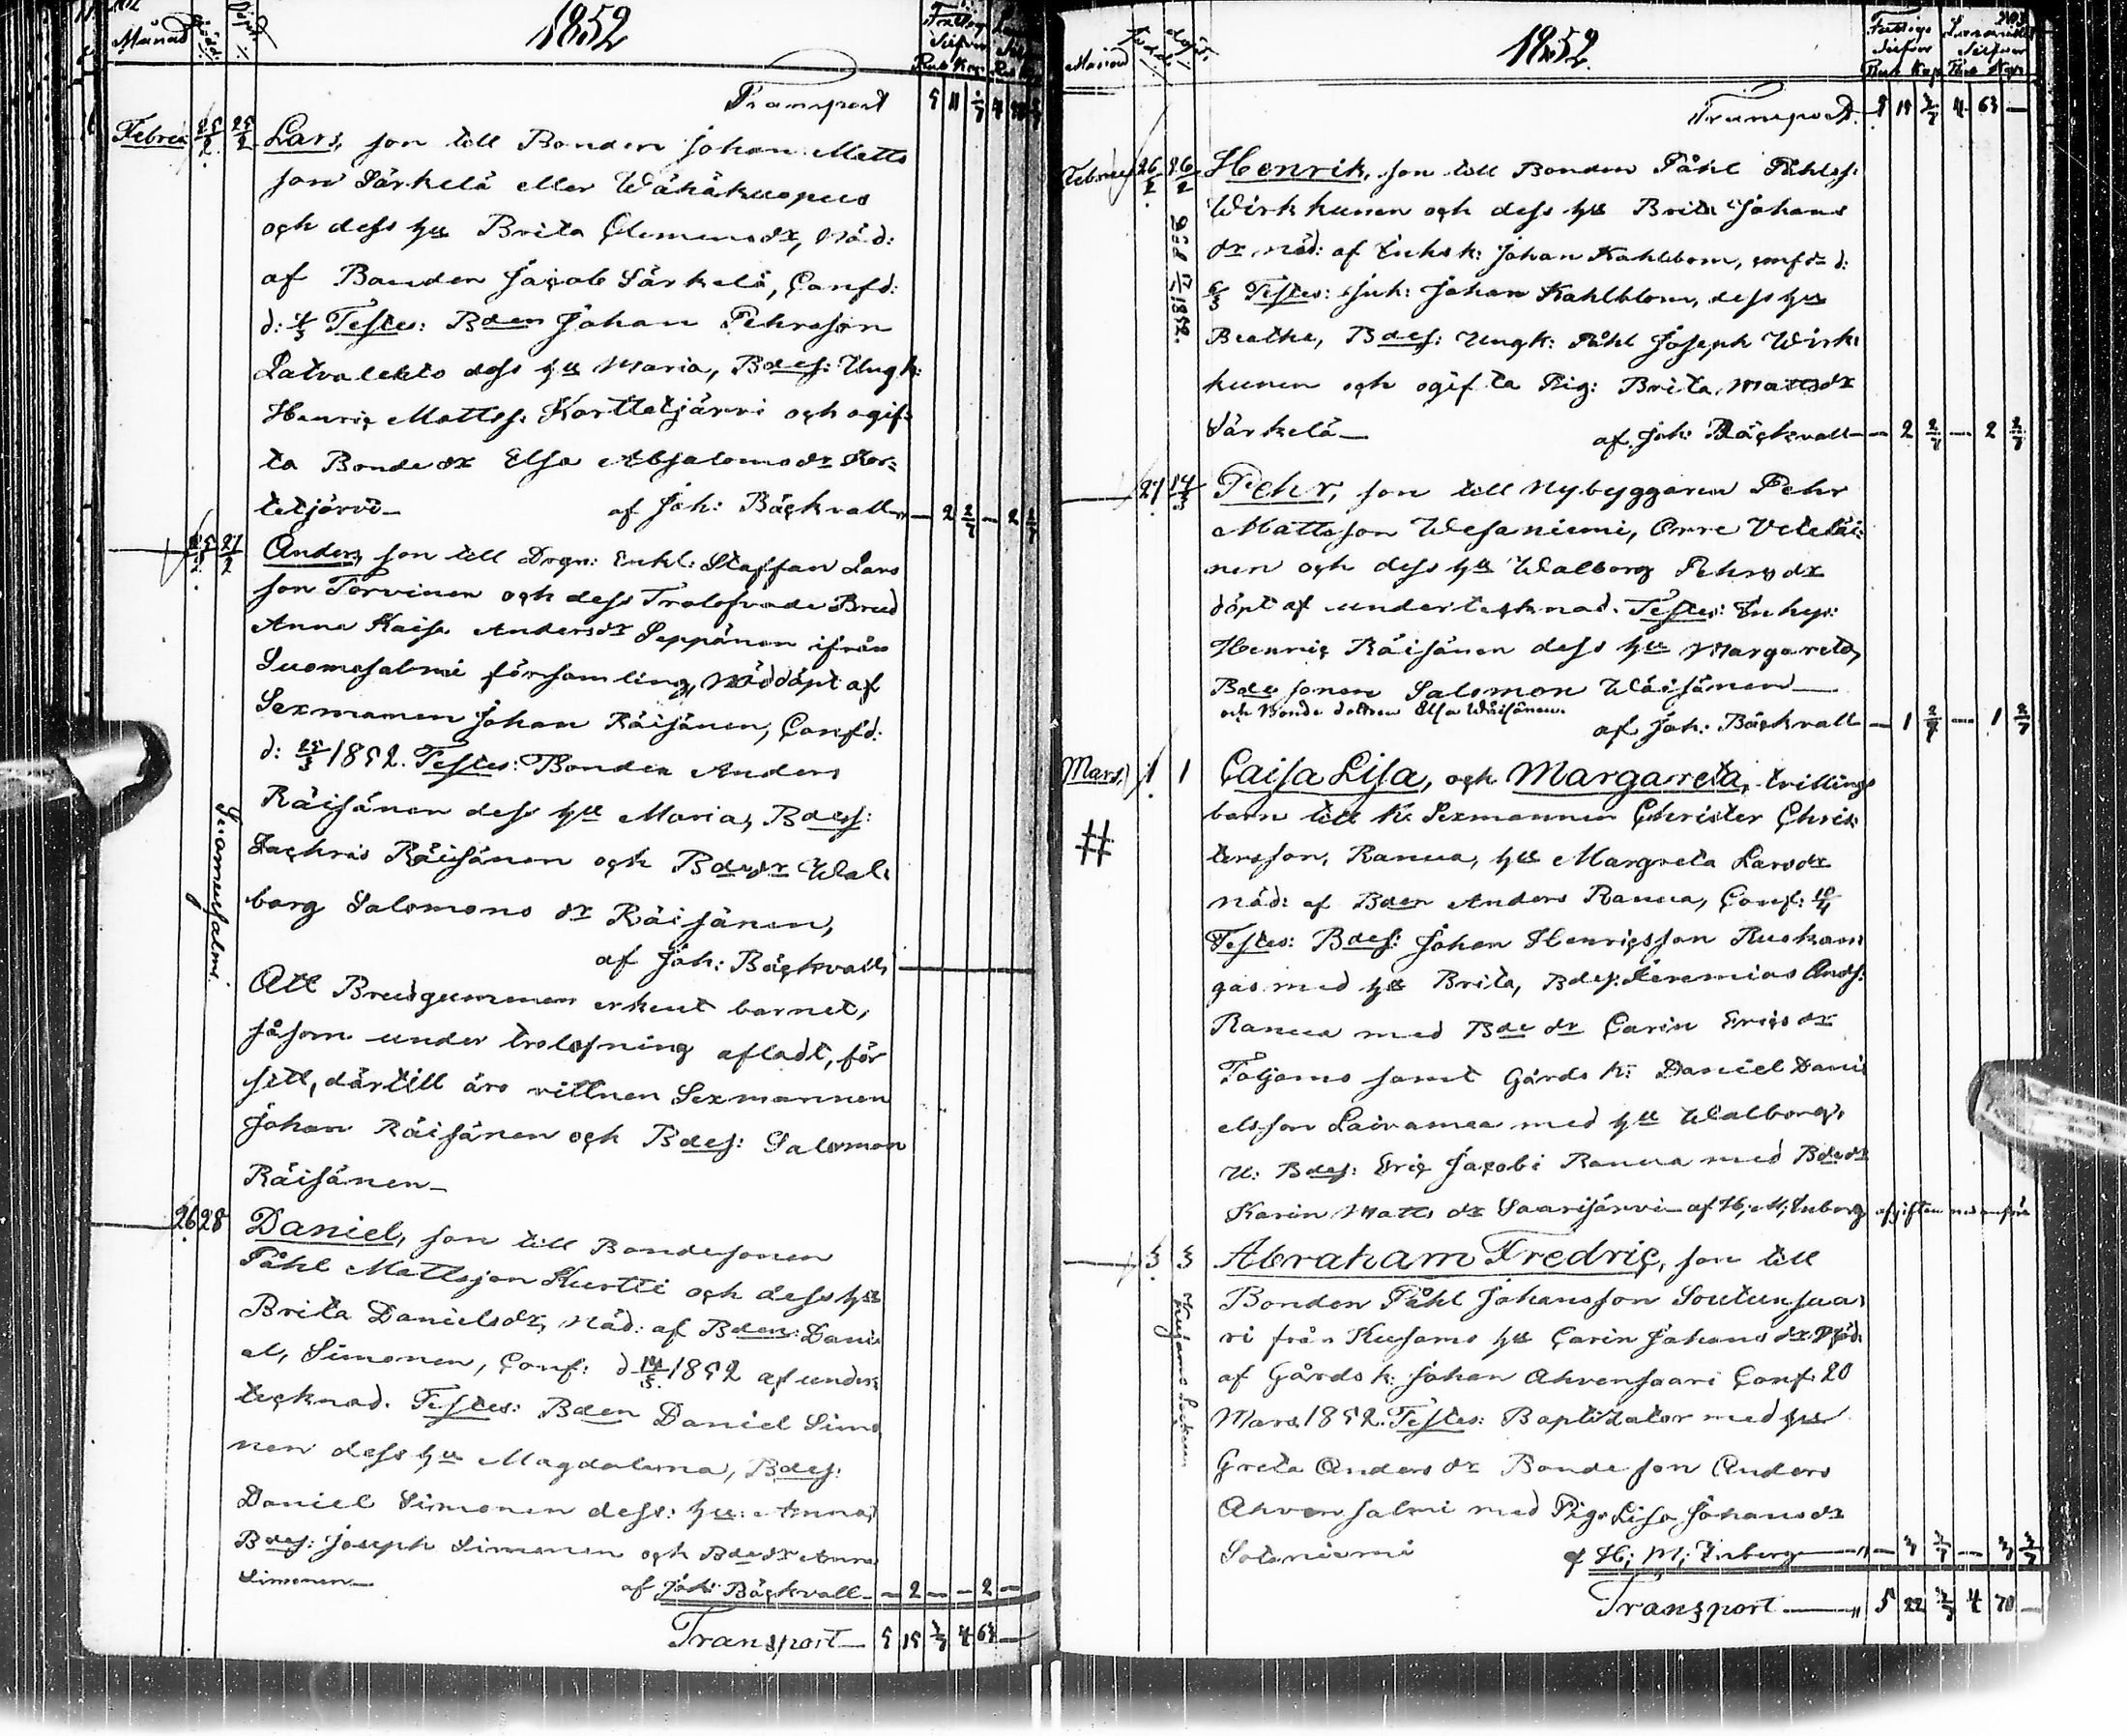 1852
Månad
Transport 5 11 4
Februa 25/2 25/2 Lars, son till Bonden Johan Matts
son Särkelä eller Wähäkuopus
och dess hu Brita Clemensdr, Nöd:
af Bonden Jacob Särkelä, Confd:
d: Testes: Bden Johan Pehrsson
Latvalehto dess hu Maria, Bdes: Ungk:
Henric Mattss: Korttetjärvi och ogif:
ta Bondedr Elsa Absalomsdr Kor:
tetjärvi— af Joh: Bäckvall — 2 2/7 — 2 2/7
27/2 Anders, son till Drgn: Enkl: Staffan Lars
son Törvinen och dess Trolofvade Brud
Anna Kaisa Andersdr Seppänen ifrån
Suomosalmi församling, Nöddöpt af
Sexmannen Johan Räisänen, Confd:
d: 25/3 1852. Testes: Bonden Anders
Räisänen dess hu Maria, Bdes:
Zachris Räisänen och Bdedr Wal:
borg Salomons dr Räisänen,
af Joh: Bäckvall
Suomusalmi.
Att Brudgummen erkent barnet,
såsom under trolofning afladt, för
sitt, därtill äro vittnen Sexmannen
Johan Räisänen och Bdes: Salomon
Räisänen—
26 28 Daniel, son till Bondesonen
Påhl Mattsson Kurtti och dess hu
Brita Danielsdr, Nöd: af Bden: Dani
el, Simonen, Conf: d 14/3 1852 af under:
tecknad. Testes: Bden Daniel Simo
nen dess hu Magdalena, Bdes:
Daniel Simonen dess: hu: Anna,
Bdes: Joseph Simonen och Bdedr Anna
Simonen— af Joh: Bäckvall — 2 — — 2 —
Transport — 5 15 3/7 4 63 —
1852.
Månad
Transport. 5 15 3/7 4 63 —
Februa 26/2 26/2 Henrik, son till Bonden Påhl Påhlss:
Wirkkunen och dess hu Brita Johans
dr nöd: af Enksk: Johan Kahlblom, confd d:
6/3 Testes: Johan Kahlblom, dess hu
Beatha, Bdes: Ungk: Påhl Joseph Wirk:
kunen och ogifta Pig: Brita Mattsdr
Särkelä— af Joh: Bäckvall — 2 2/7 — 2 2/7
1852.
27 14/3 Pehr, son till Nybyggaren Pehr
Mattsson Wesaniemi, Orre Veteläi:
nen och dess hu Walborg Pehrsdr
döpt af undertecknad. Testes: Inhys:
Henric Räisänen dess hu Margareta,
Bde sonen Salomon Wäisänen—
och Bonde dottren Elsa Wäisänen.
af Joh: Bäckvall — 1 2/7 — 1 2/7
Mars, 1 1 Caisa Lisa, och Margareta, tvillings
barn till K: Sexmannen Christer Chris
tersson, Ranua, hu Margreta Larsdr
nöd: af Bden Anders Ranua, Conf:
Testes: Bdes: Johan Henricsson Ruokan:
gas med hu Brita, Bdes: Jeremias Ands:
Ranua med Bde dr Carin Ericsdr
Toljamo samt Gårds k: Daniel Dani
elsson Laivamaa med hu Walborg,
U: Bdes: Eric Jacobi Ranua med Bdedr
Karin Matts dr Saarijärvi—af H: M: Enberg
3 3 Abraham Fredric, son till
Bonden Påhl Johansson Soutunsaa:
ri från Kusamo hu Carin Johans dr Nöd:
af Gårds k: Johan Ahvensaari Conf: 20
Mars 1852. Testes: Baptizator med hu
Greta Anders dr Bonde son Anders
Ahvensalmi med Pigo Lisa Johansdr
Kusamo Socken
Transport — 5 22 3/7 4 70 —